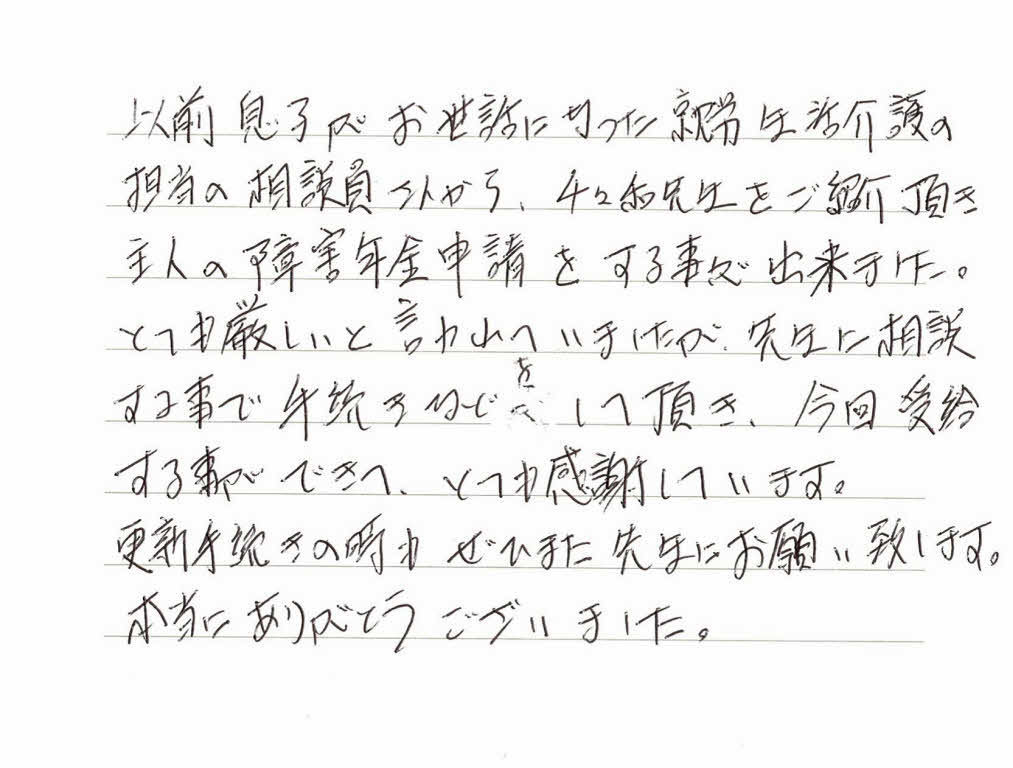 以前息子がお世話になった就労生活介護の
担当の相談員さんから、先生をご紹介頂き
主人の障害年金申請をする事が出来ました。
とても厳しいと言われていましたが、先生に相談
する事で手続きなどをして頂き、今回受給
する事ができて、とても感謝しています。
更新手続きの時もぜひまた先生にお願い致します。
本当にありがとうございました。